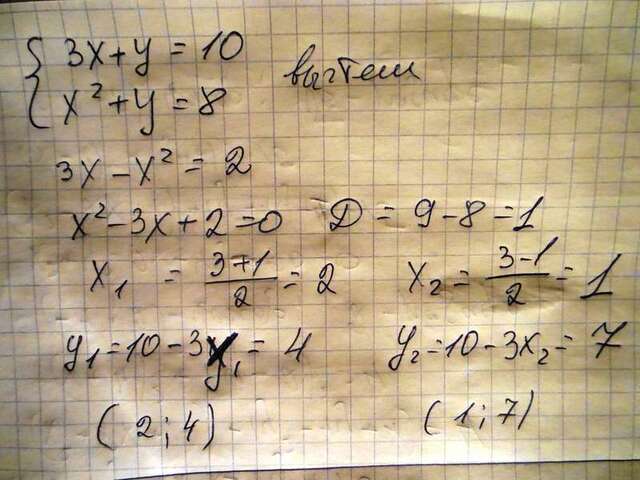 { 3x + y = 10
{ x² + y = 8 вычтем
3x − x² = 2
x² − 3x + 2 = 0 D = 9 − 8 = 1
x₁ = (3+1)/2 = 2 x₂ = (3−1)/2 = 1
y₁ = 10 − 3x₁ = 4 y₂ = 10 − 3x₂ = 7
(2; 4) (1; 7)